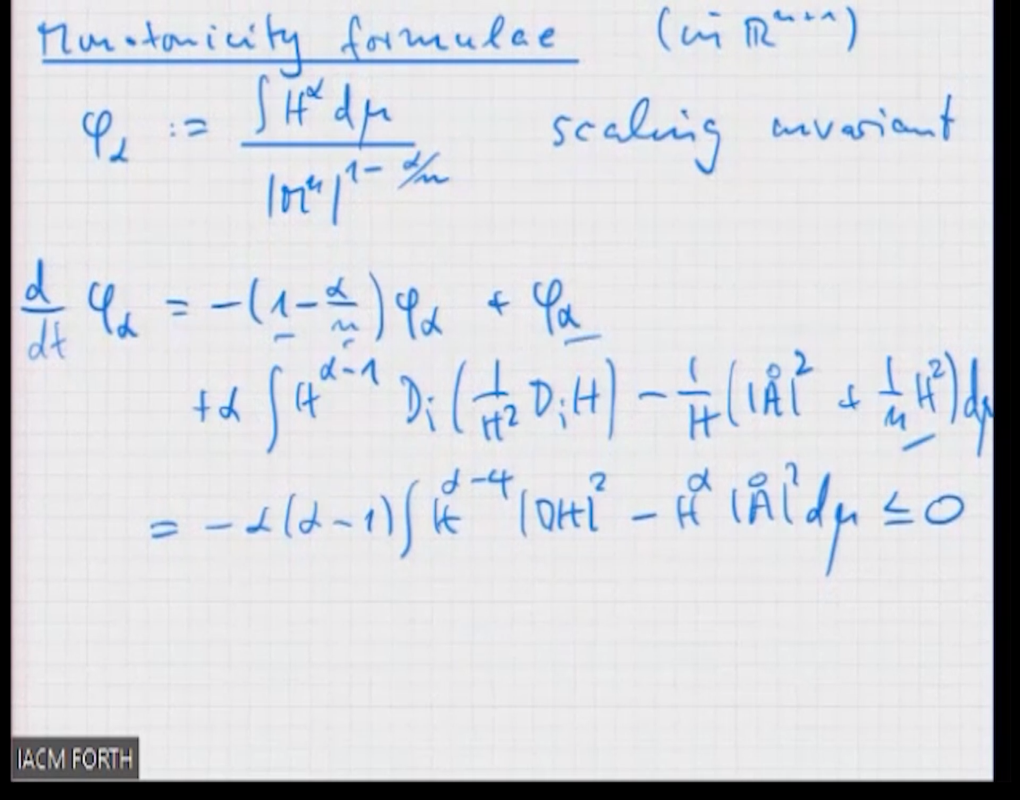 Monotonicity formulae (in ℝⁿ⁺¹)
φ_α := ∫ H^α dμ / |M^n|^{1-α/n} scaling invariant
d/dt φ_α = -(1 - α/n) φ_α + φ_α
+α ∫ H^{α-1} D_i (1/H² D_i H) - 1/H (|Å|² + 1/n H²) dμ
= -α(α-1) ∫ H^{α-4} |DH|² - H^α |Å|² dμ ≤ 0
IACM FORTH